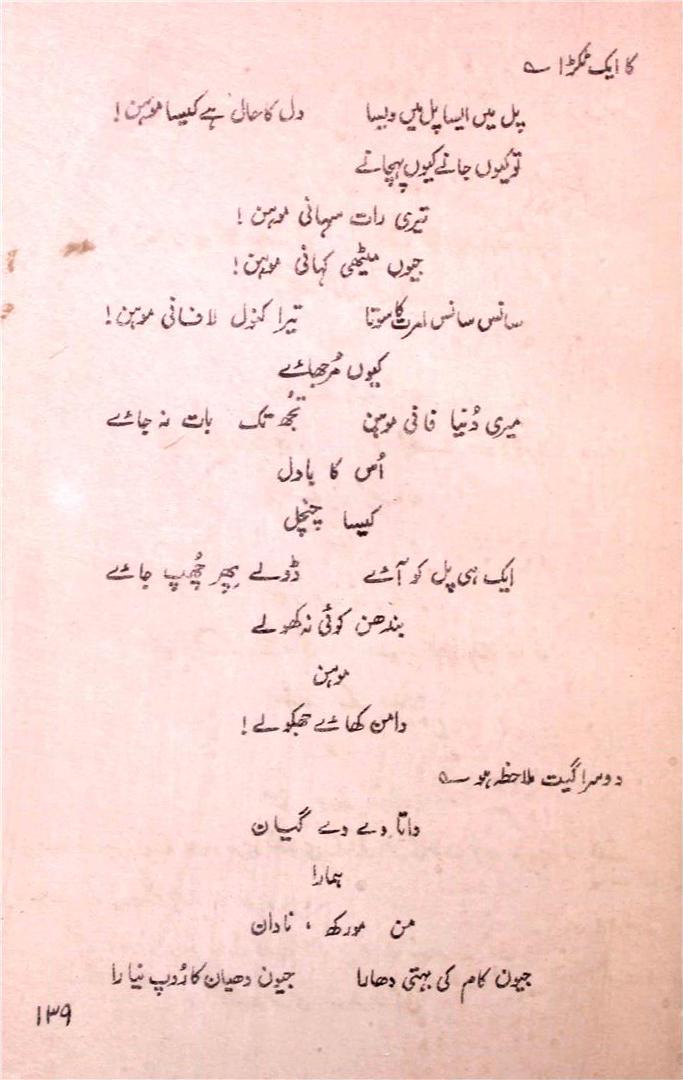 کا ایک ٹکڑا ہے
پل میں ایسا پل میں ویسا دل کا حال ہے کیسا موہن!
تو کیوں جانے کیوں پہچانے
تیری رات سہانی موہن!
جیوں میٹھی کہانی موہن!
سانس سانس امرت کا سوتا تیرا کنول لافانی موہن!
کیوں مُرجھائے
میری دُنیا فانی موہن تجُھ تک بات نہ جائے
اُس کا بادل
کیسا چنچل
ایک ہی پل کو آئے ڈولے پھِر چھُپ جائے
بندھن کوئی نہ کھولے
موہن
دامن کھائے جھکولے!
دوسرا گیت ملاحظہ ہو ؎
داتا دے دے گیان
ہمارا
من مورکھ، نادان
جیون کام کی بہتی دھارا جیون دھیان کا رُوپ نیارا
۱۳۹